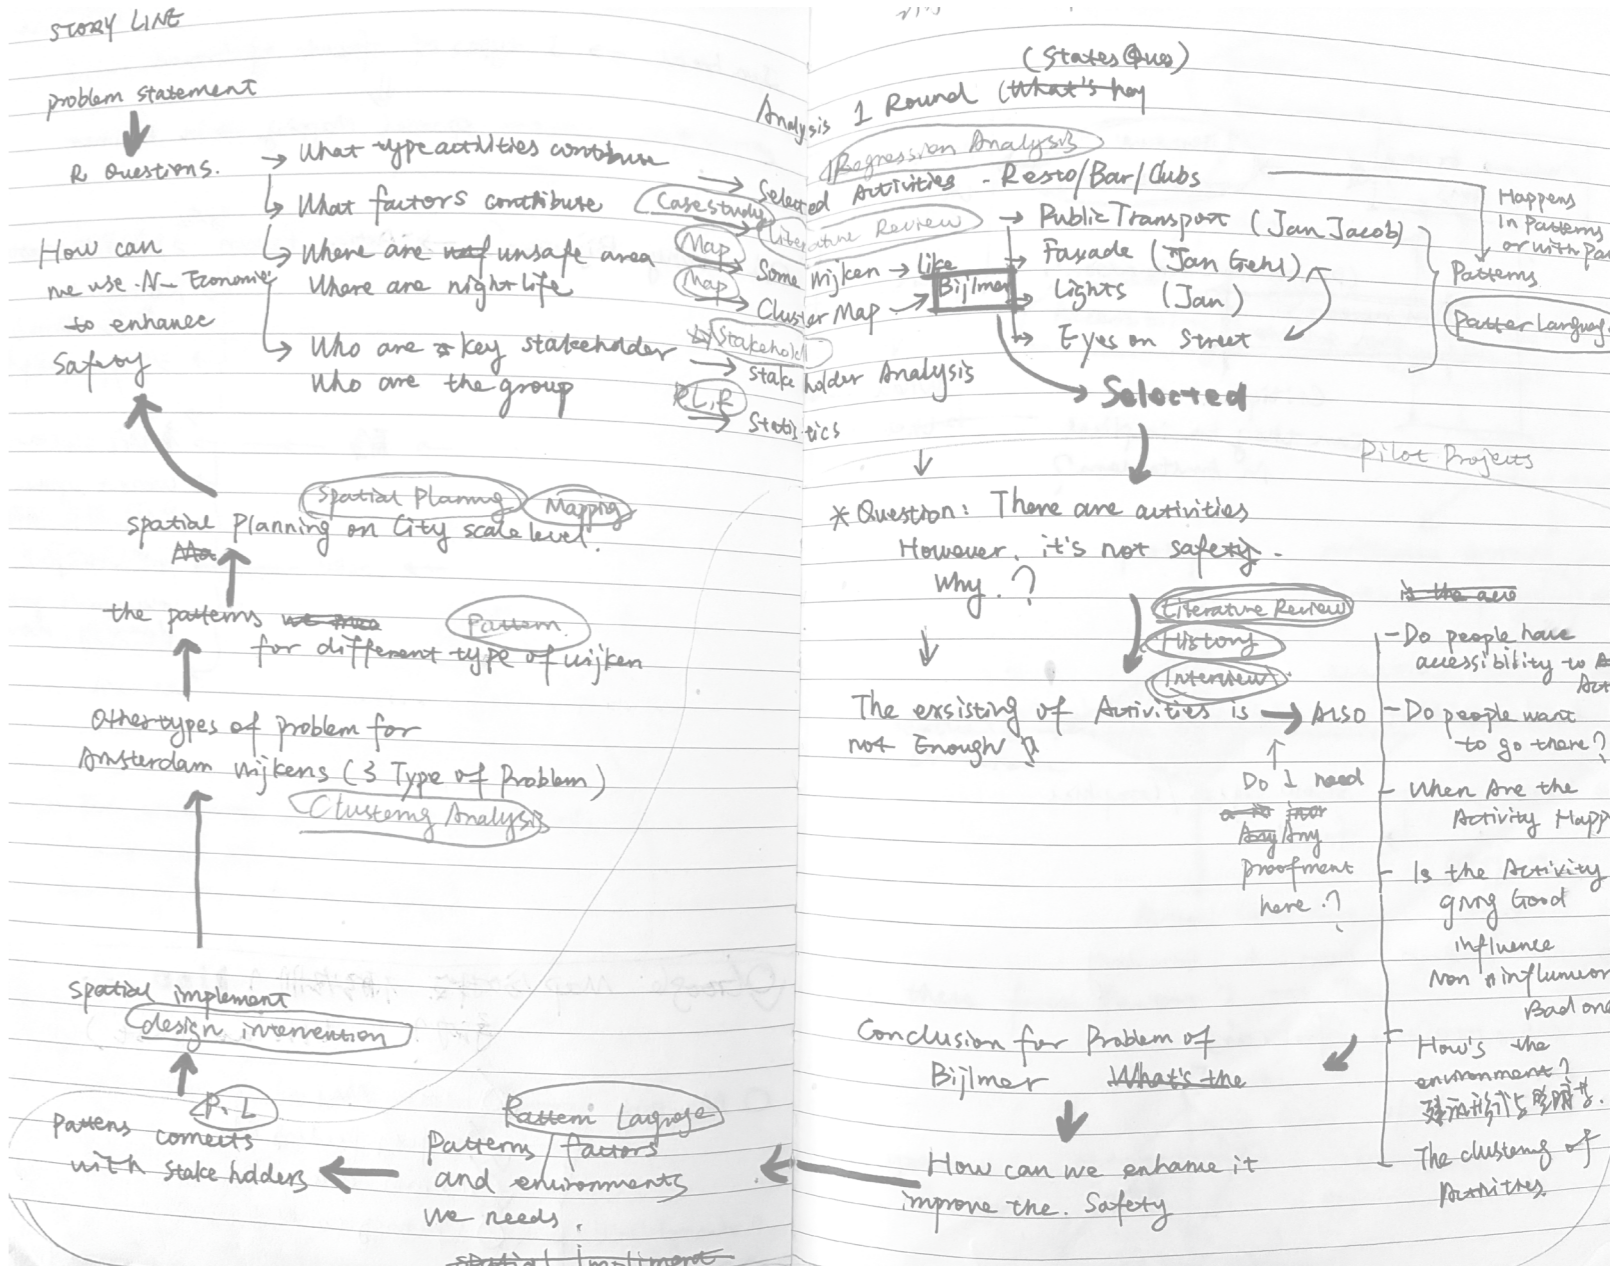 STORY LINE
problem statement
R Questions.
How can
we use -N- Economie
to enhance
Safety
What type activities contribuse
What factors contribuse
Where are unsafe area
Where are nightlife
Who are key stakeholder
Who are the group
Case study
Map
Map
Stakehold
L.R
Spatial Planning
Mapping
spatial Planning on City scale level.
the patterns
Pattern
for different type of wijken
Other types of problem for
Amsterdam wijkens (3 Type of Problem)
Clustering Analysis
Spatial implement
design intervention
P. L
Patterns connects
with stakeholders
Pattern Language
Patterns / factors
and environments
we needs.
spatial Impliment
(States Ques)
Analysis 1 Round (What's key
Regression Analysis
Selected Activities - Resto/Bar/Clubs
Literature Review
Public Transport (Jan Jacob)
Some wijken → like
Faxade (Jan Gehl)
Cluster Map
Bijlmer
Lights (Jan)
Eyes on Street
stakeholder Analysis
Statistics
Selected
Happens
in Patterns
or with Pa
Patterns
Patter Languag
Pilot Projects
* Question: There are activities
However, it's not safety.
Why.?
Literature Review
History
Interview
The exsisting of Activities is → ALSO
not Enough
Do I need
Any Any
proofment
here.?
is the
- Do people have
accessibility to A
Act
- Do people want
to go there?
- When Are the
Activity Happ
- Is the Activity
giving Good
influence
Non influence
Bad one
How's the
environment?
The clustering of
Activities.
Conclusion for Problem of
Bijlmer What's the
How can we enhance it
improve the. Safety